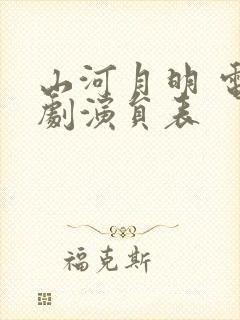 山河月明 電
劇演員表
福克斯